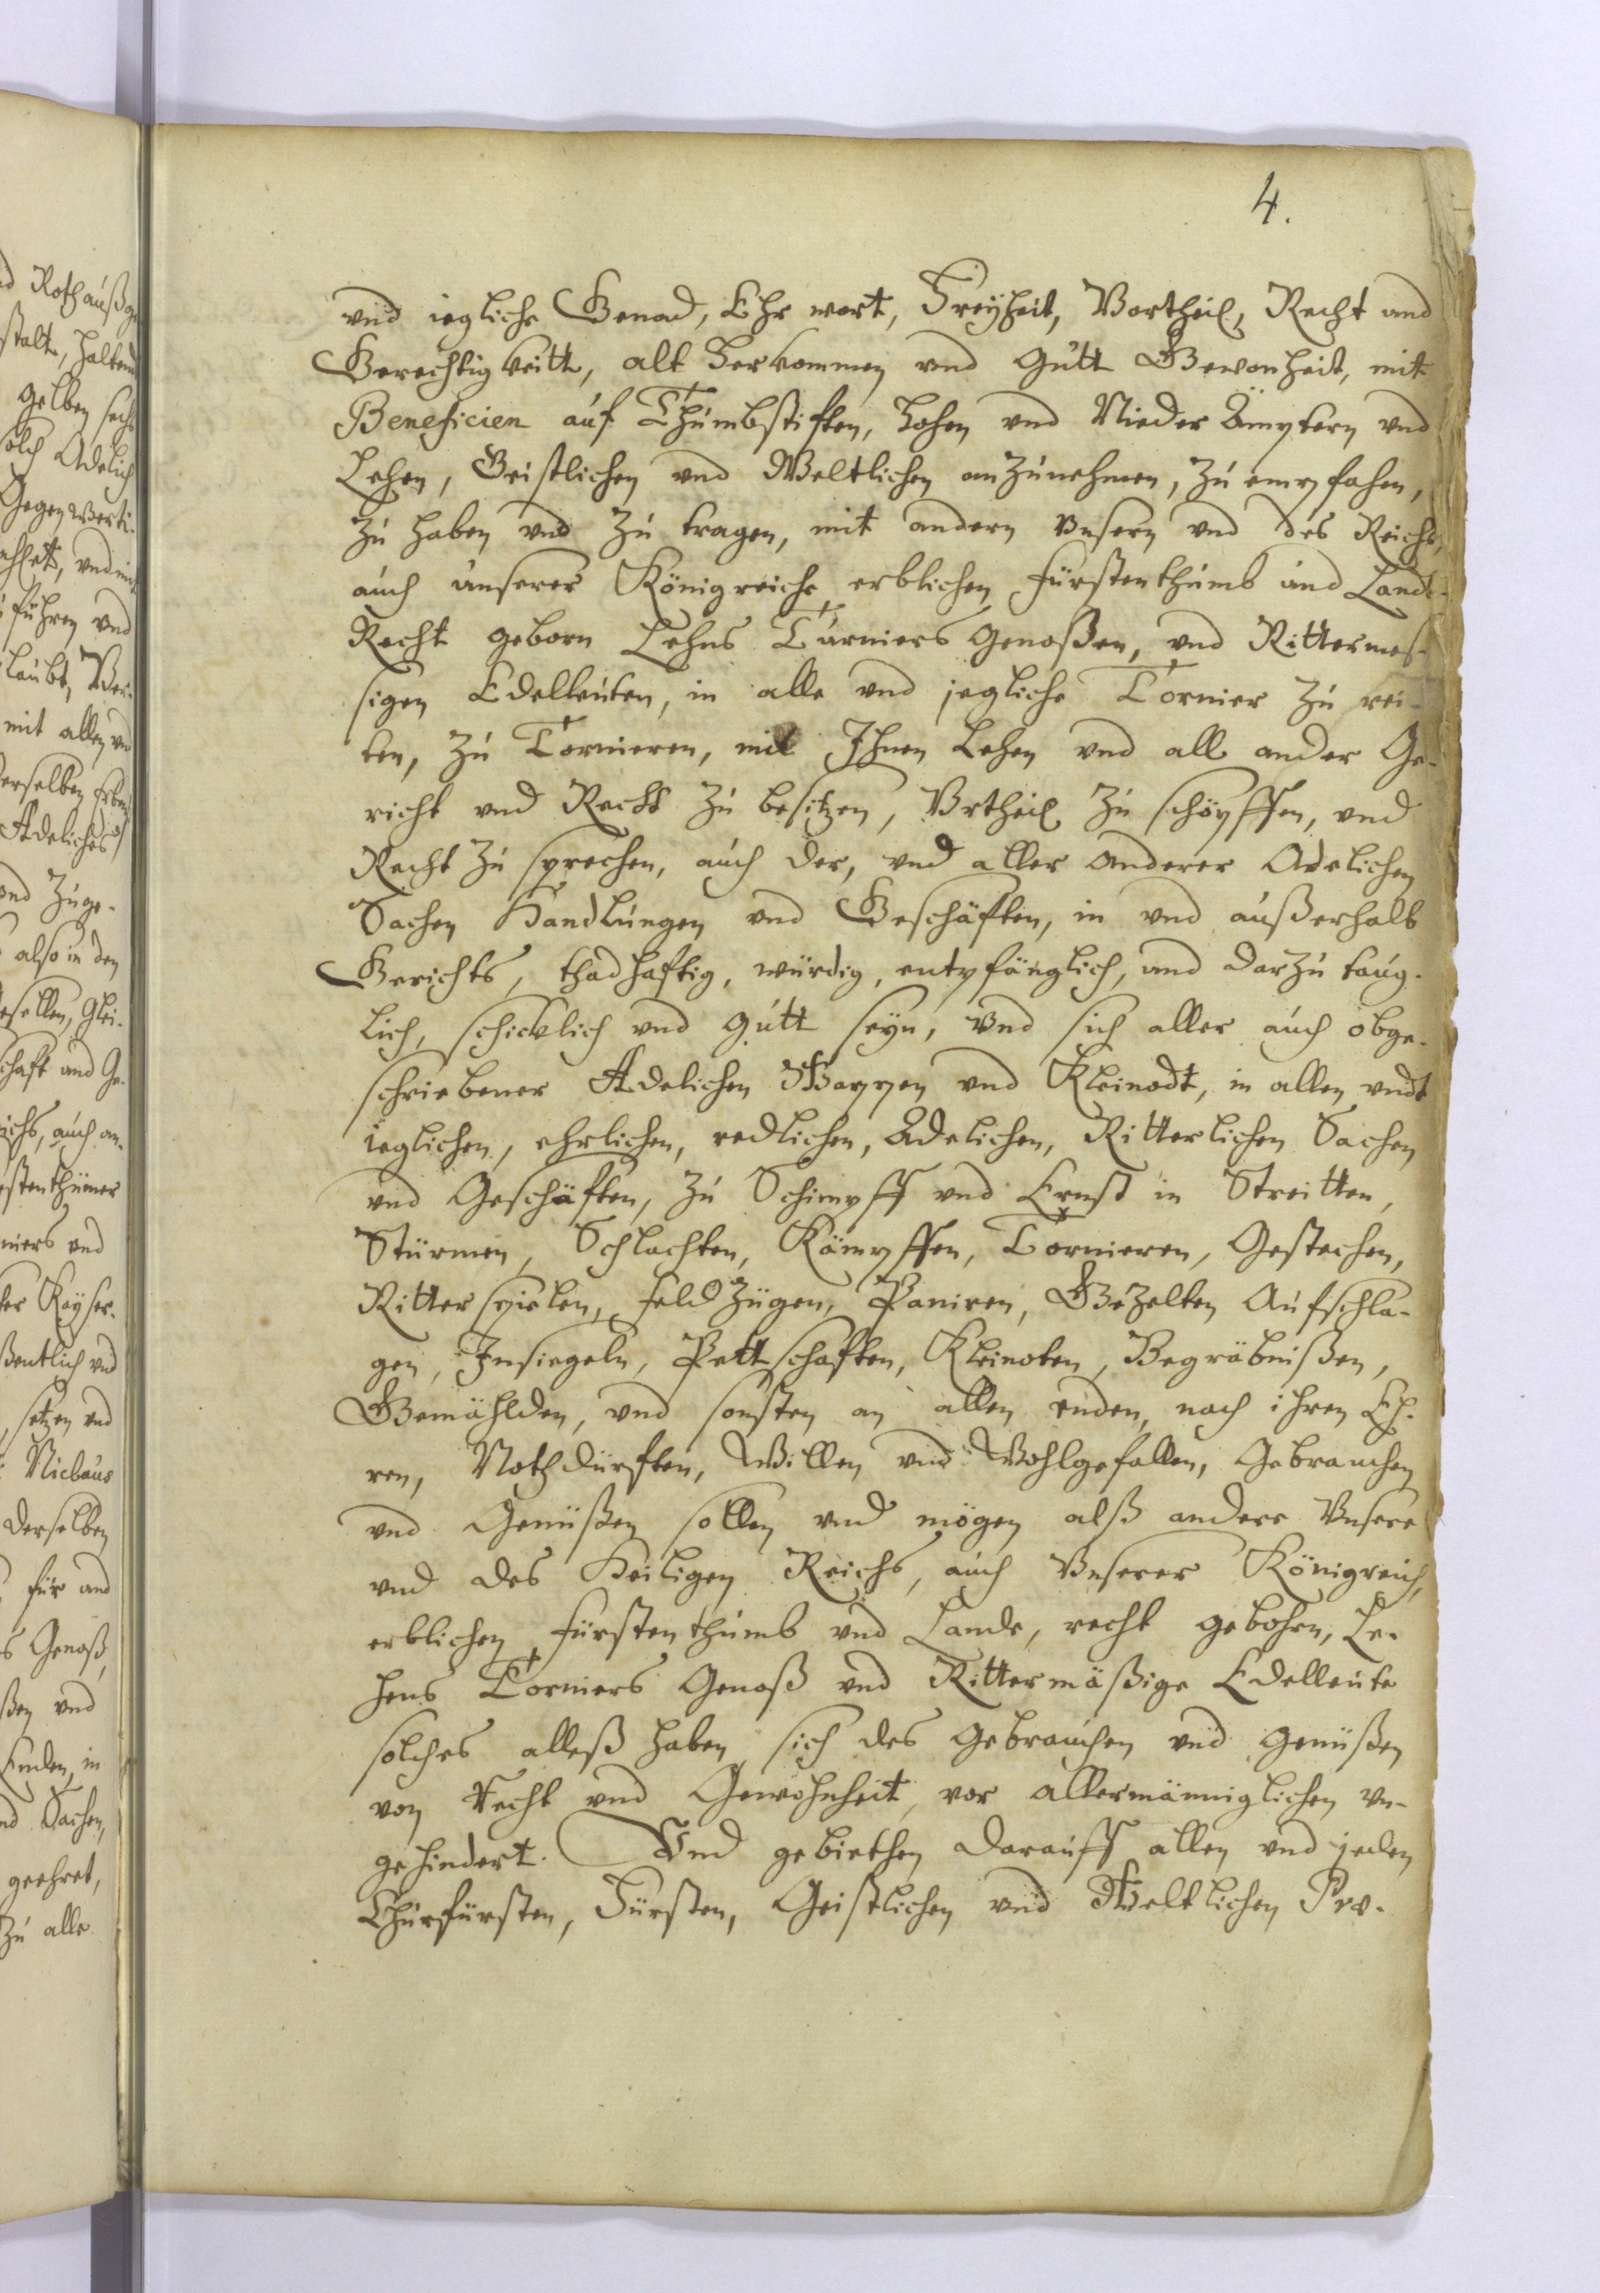 4.
vnd iegliche Genad, Ehr wert, Freÿheit, Vortheil, Recht und
Gerechtigkeitt, alt Herkommen vnd gutt Gewonheit, mit
Beneficien auf Thumbstifften, Hohen vnd Nieder Ämptern vnd
Lehen, Geistlichen vnd Weltlichen anzunehmen, zu empfahen,
zu haben vnd zu tragen, mit andern Vnsern vnd des Reichs,
auch unserer Königreiche erblichen Fürstenthumb und Landt-
Recht geborn Lehns Turniers Genoßen, vnd Rittermes-
sigen Edelleuten, in alle vnd jegliche Tornier zu rei-
ten, zu Tornieren, mit Ihnen Lehen vnd all ander Ge-
richt vnd Recht zu besitzen, Vrtheil zu schöpffen, vnd
Recht zu sprechen, auch der, vnd aller anderer Adelichen
Sachen Handlungen vnd Geschäfften, in vnd außerhalb
Gerichts, thadhafftig, würdig, entpfänglich, und darzu taug-
lich, schicklich vnd gutt seyn, Vnd sich aller auch obge-
schriebener Adelichen Wappen vnd Kleinodt, in allen vndt
ieglichen, ehrlichen, redlichen, Adelichen, Ritterlichen Sachen
vnd Geschäfften, zu Schimpff vnd Ernst in Streitten,
Stürmen, Schlachten, Kämpffen, Tornieren, Gestechen,
Ritterspielen, Feldzügen, Paniren, Gezelten Aufschla-
gen, Insiegeln, Pettschafften, Kleinoten, Begräbnißen,
Gemählden, vnd sonsten an allen enden, nach ihren Eh-
ren, Nothdürfften, Willen vnd Wohlgefallen, Gebrauchen
vnd Genüßen sollen vnd mögen alß andere Vnsere
vnd des Heiligen Reichs, auch Vnserer Königreich,
erblichen Fürstenthumb vnd Lande, recht gebohrn, Le-
hens Torniers Genoß vnd Rittermäßige Edelleute
solches alleß haben, sich des gebrauchen vnd genüßen
von Recht vnd Gewohnheit, vor allermänniglichen vn-
gehindert. Vnd gebiethen darauff allen vnd jeden
Churfürsten, Fürsten, Geistlichen vnd Weltlichen Præ-